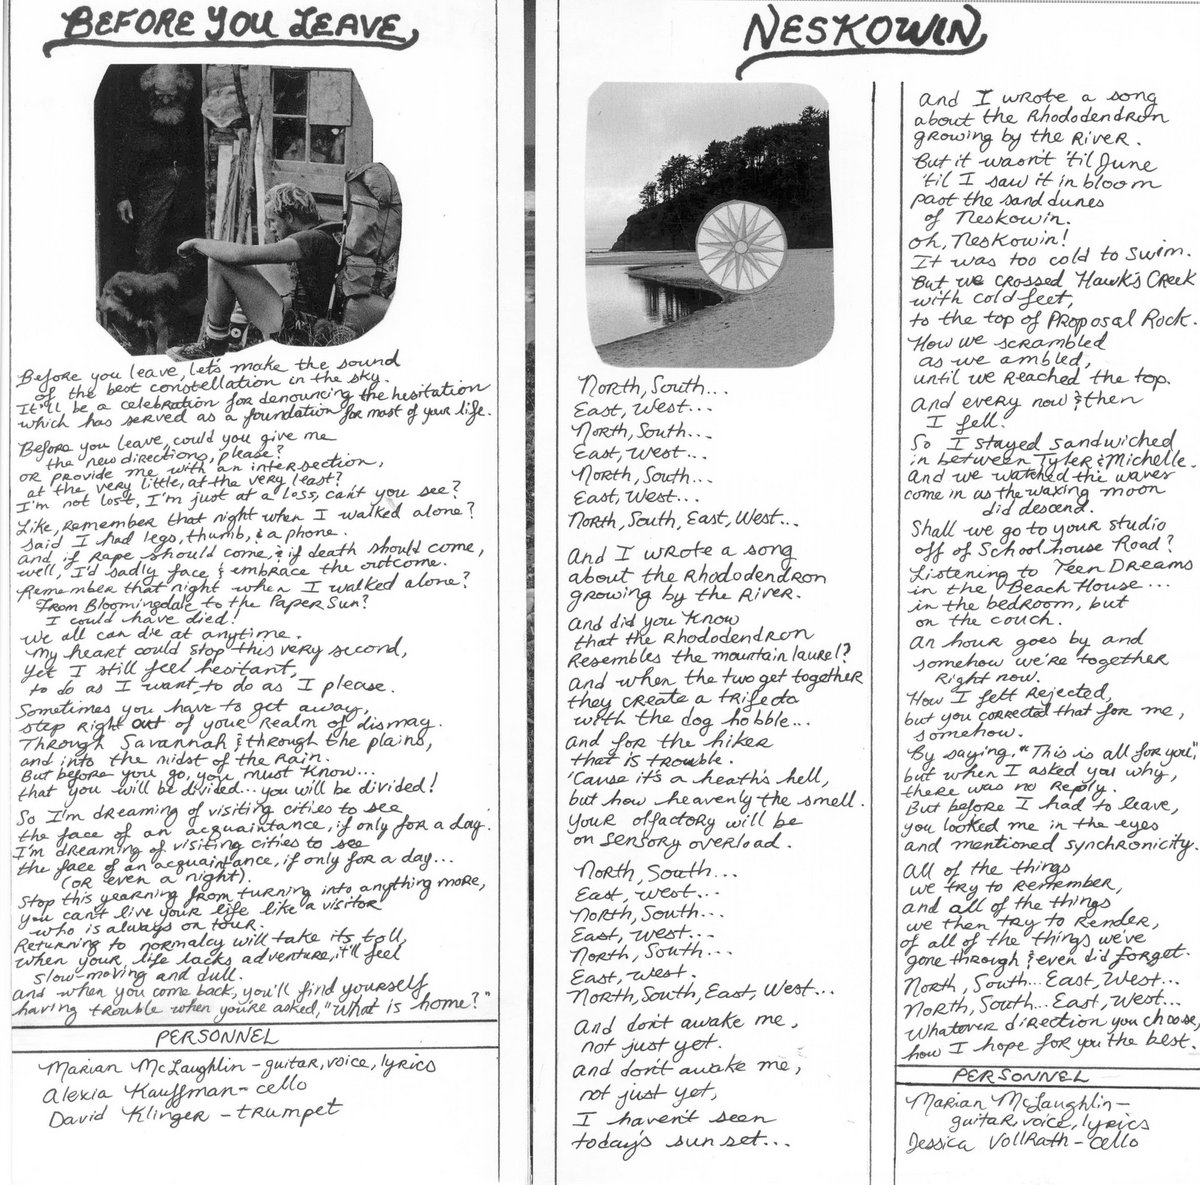 BEFORE YOU LEAVE
Before you leave, let's make the sound
of the best constellation in the sky.
It'll be a celebration for denouncing the hesitation
which has served as a foundation for most of your life.
Before you leave, could you give me
the new directions, please?
or provide me with an intersection,
at the very little, at the very least?
I'm not lost, I'm just at a loss, can't you see?
Like, remember that night when I walked alone?
Said I had legs, thumb, & a phone.
and if rape should come, & if death should come,
well, I'd sadly face & embrace the outcome.
Remember that night when I walked alone?
From Bloomingdale to the Paper Sun?
I could have died!
We all can die at anytime.
My heart could stop this very second,
yet I still feel hesitant,
to do as I want to do as I please.
Sometimes you have to get away,
step right out of your realm of dismay.
Through Savannah & through the plains,
and into the midst of the rain.
But before you go, you must know...
that you will be divided... you will be divided!
So I'm dreaming of visiting cities to see
the face of an acquaintance, if only for a day.
I'm dreaming of visiting cities to see
the face of an acquaintance, if only for a day...
(or even a night).
Stop this yearning from turning into anything more,
you can't live your life like a visitor
who is always on tour.
Returning to normalcy will take its toll,
when your life lacks adventure, it'll feel
slow-moving and dull.
and when you come back, you'll find yourself
having trouble when you're asked, "What is home?"
PERSONNEL
Marian McLaughlin - guitar, voice, lyrics
Alexia Kauffman - cello
David Klinger - trumpet
NESKOWIN
North, South...
East, West...
North, South...
East, West...
North, South...
East, West...
North, South, East, West...
And I wrote a song
about the Rhododendron
growing by the River.
And did you know
that the Rhododendron
Resembles the mountain laurel?
And when the two get together
they create a trifecta
with the dog hobble...
and for the hiker
that is trouble.
'Cause it's a heath's hell,
but how heavenly the smell.
Your olfactory will be
on sensory overload.
North, South...
East, West...
North, South...
East, West...
North, South...
East, West.
North, South, East, West...
And don't awake me,
not just yet.
and don't awake me,
not just yet,
I haven't seen
today's sun set...
And I wrote a song
about the Rhododendron
growing by the River.
But it wasn't 'til June
'til I saw it in bloom
past the sand dunes
of Neskowin.
oh, Neskowin!
It was too cold to swim.
But we crossed Hawk's Creek
with cold feet,
to the top of Proposal Rock.
How we scrambled
as we ambled,
until we reached the top.
And every now & then
I fell.
So I stayed sandwiched
in between Tyler & Michelle.
And we watched the waves
come in as the waxing moon
did descend.
Shall we go to your studio
off of Schoolhouse Road?
Listening to Teen Dreams
in the Beach House...
in the bedroom, but
on the couch.
An hour goes by and
somehow we're together
Right now.
How I felt Rejected,
but you corrected that for me,
somehow.
By saying, "This is all for you",
but when I asked you why,
there was no reply.
But before I had to leave,
you looked me in the eyes
and mentioned synchronicity.
All of the things
we try to remember,
and all of the things
we then try to Render,
of all of the things we've
gone through & even did forget.
North, South... East, West...
North, South... East, West...
Whatever direction you choose,
how I hope for you the best.
PERSONNEL
Marian McLaughlin -
guitar, voice, lyrics
Jessica Vollrath - cello